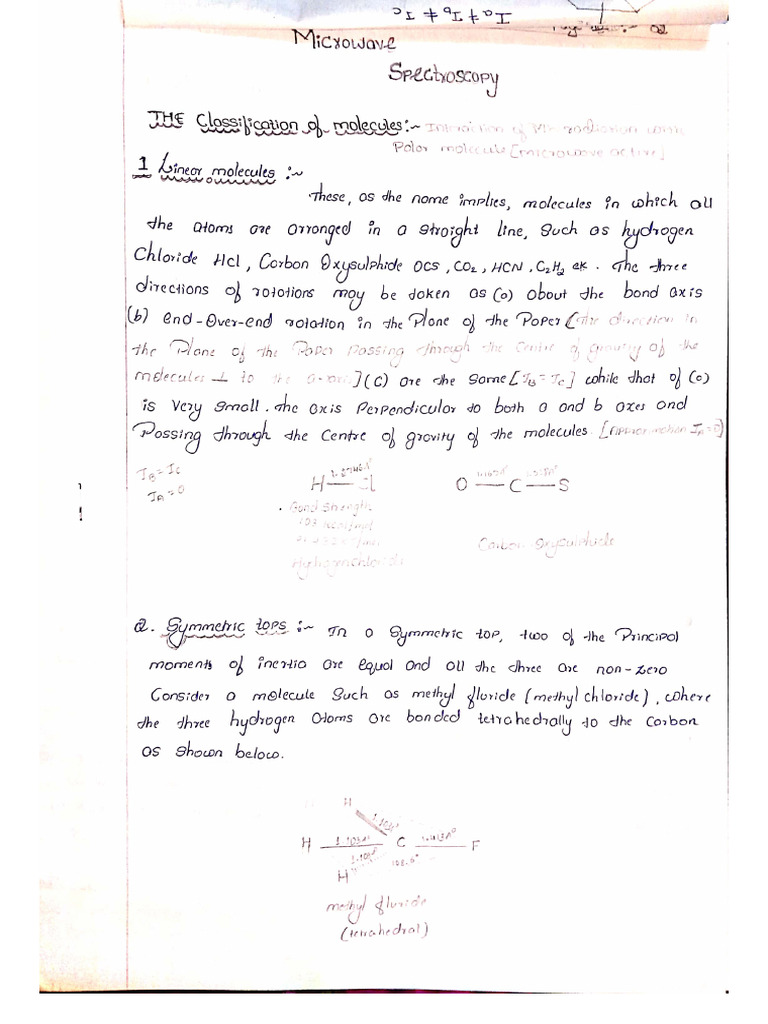 Ia ≠ Ib ≠ Ic
Microwave
Spectroscopy
THE Classification of molecules:~ Interaction of radiation with
Polar molecule [microwave active]
1 Linear molecules :~
These, as the name implies, molecules in which all
the atoms are arranged in a straight line, such as hydrogen
Chloride Hcl, Carbon Oxysulphide OCS, CO2, HCN, C2H2 etc. The three
directions of rotations may be token as (a) about the bond axis
(b) end-over-end rotation in the Plane of the Paper [the direction in
the Plane of the Paper Passing through the Centre of gravity of the
molecules ⊥ to the a-axis] (C) are the same [IB = IC] while that of (a)
is very small. The axis Perpendicular to both a and b axes and
Passing through the Centre of gravity of the molecules. [IA=0]
IB = IC
IA = 0
H — Cl
O — C — S
Bond Strength
Carbon Oxysulphide
Hydrogenchloride
2. Symmetric tops :~ In a symmetric top, two of the Principal
moments of inertia are equal and all the three are non-zero
Consider a molecule Such as methyl fluride (methyl chloride), where
the three hydrogen atoms are bonded tetrahedrally to the Carbon
as shown below.
H
H C F
H
methyl fluride
(tetrahedral)